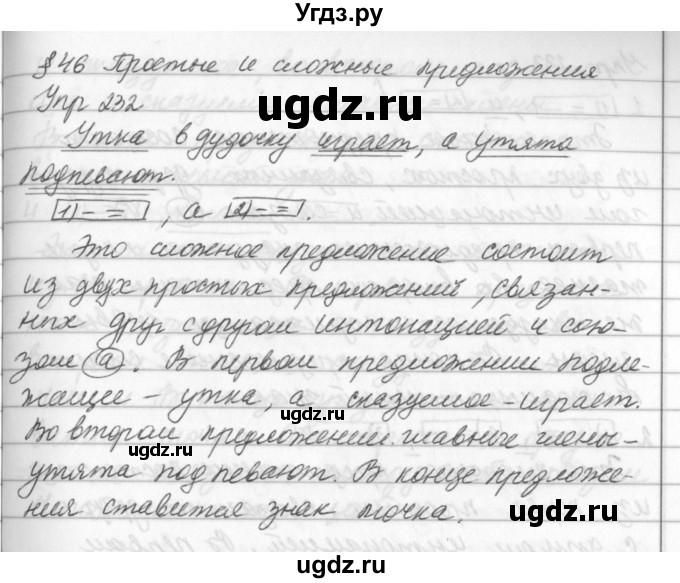 Угдз.ру
§46 Простые и сложные предложения
Упр 232
Утка в дудочку играет, а утята
подпевают.
1) – = , а 2) – = .
Это сложное предложение состоит
из двух простых предложений, связан-
ных друг с другом интонацией и сою-
зом а. В первом предложении подле-
жащее – утка, а сказуемое – играет.
Во втором предложении главные члены –
утята подпевают. В конце предложе-
ния ставится знак точка.
ugdz.ru
ugdz.ru
ugdz.ru
ugdz.ru
ugdz.ru